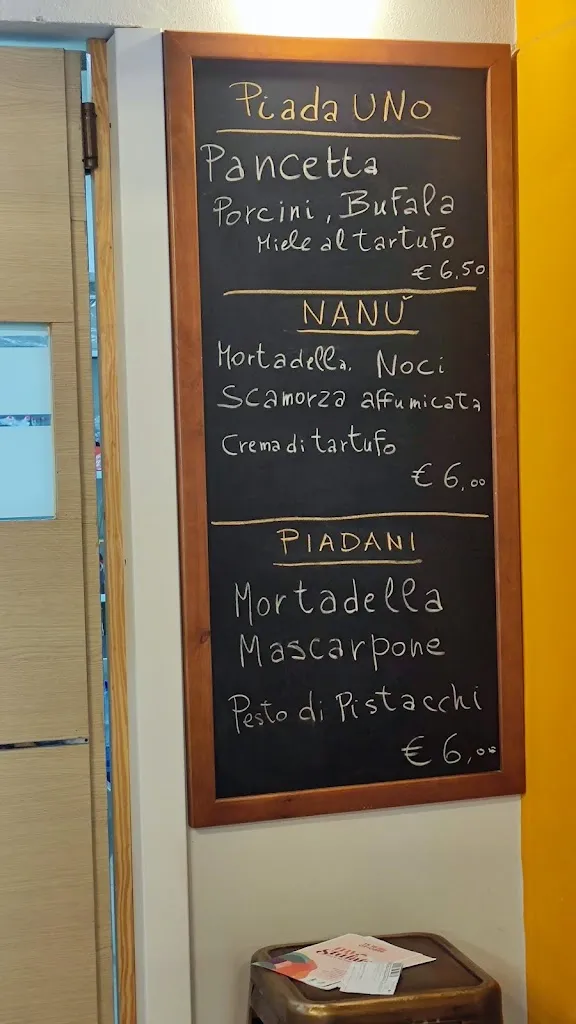 Piada UNO
Pancetta
Porcini, Bufala
Miele al tartufo
€ 6,50
NANÙ
Mortadella, Noci
Scamorza affumicata
Crema di tartufo
€ 6,00
PIADANI
Mortadella
Mascarpone
Pesto di Pistacchi
€ 6,00